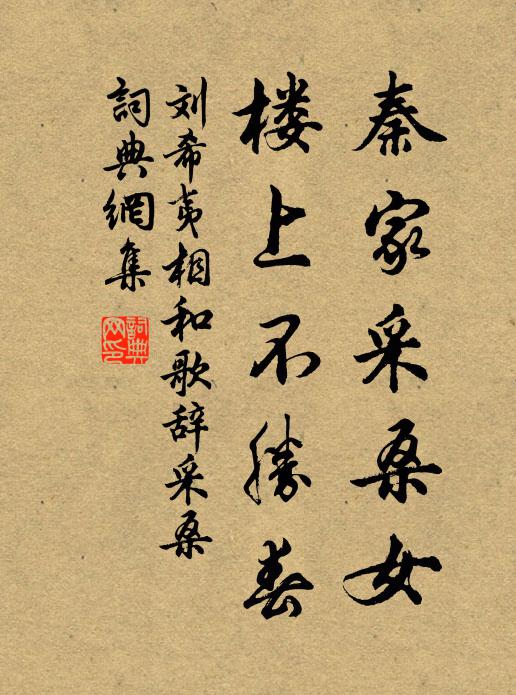 秦家采桑女
楼上不勝春
刘希夷相和歌辞采桑
詞典網集
詞典网印